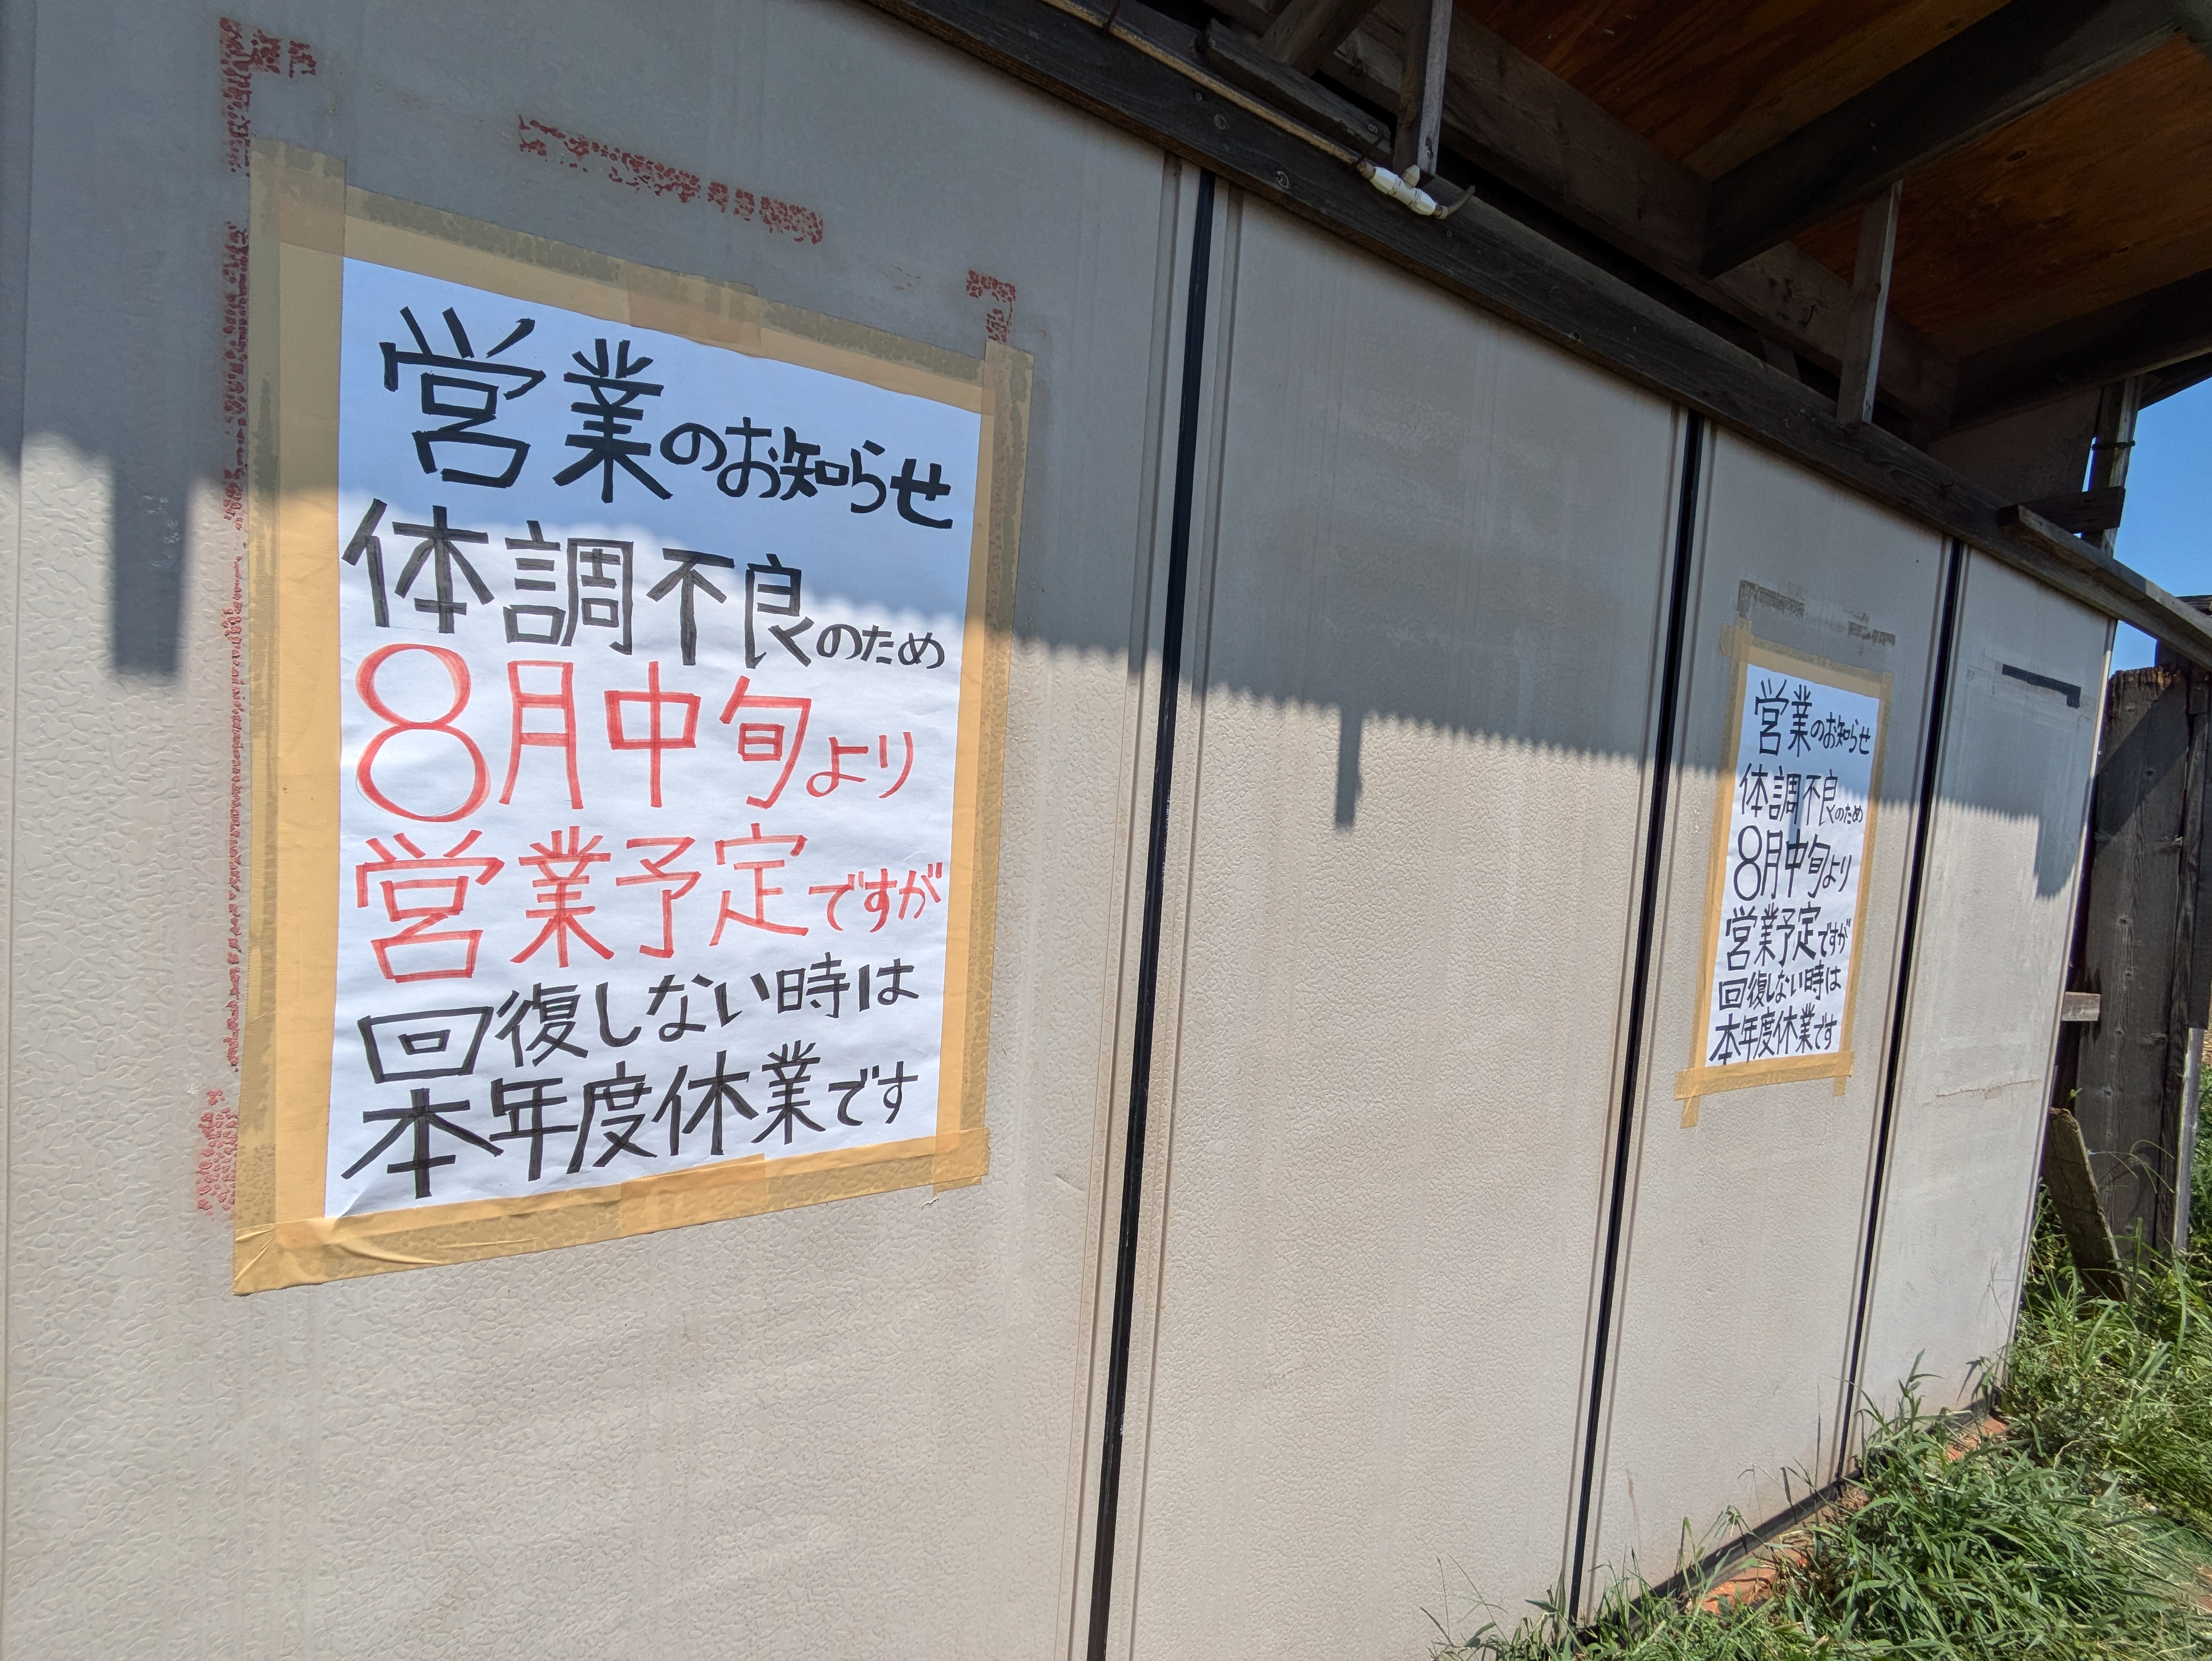 営業のお知らせ
体調不良のため
8月中旬より
営業予定ですが
回復しない時は
本年度休業です
営業のお知らせ
体調不良のため
8月中旬より
営業予定ですが
回復しない時は
本年度休業です